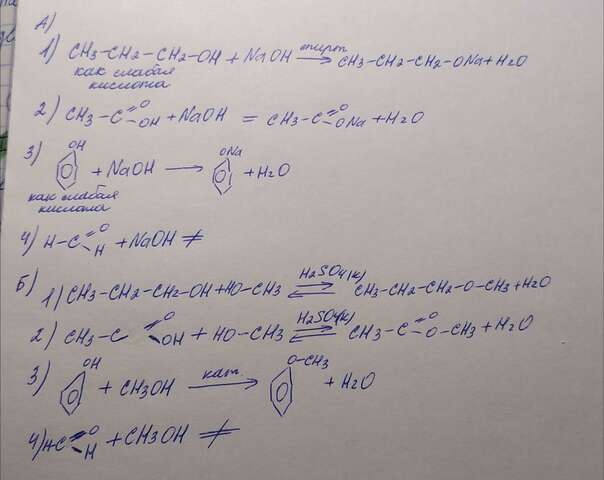 А)
1) CH3-CH2-CH2-OH + NaOH —спирт→ CH3-CH2-CH2-ONa + H2O
как слабая
кислота
2) CH3-C=O-OH + NaOH = CH3-C=O-ONa + H2O
3) OH + NaOH → ONa + H2O
как слабая
кислота
4) H-C=O-H + NaOH ≠
Б)
1) CH3-CH2-CH2-OH + HO-CH3 ⇌ H2SO4(к) CH3-CH2-CH2-O-CH3 + H2O
2) CH3-C=O-OH + HO-CH3 ⇌ H2SO4(к) CH3-C=O-O-CH3 + H2O
3) OH + CH3OH —кат.→ O-CH3 + H2O
4) HC=O-H + CH3OH ≠